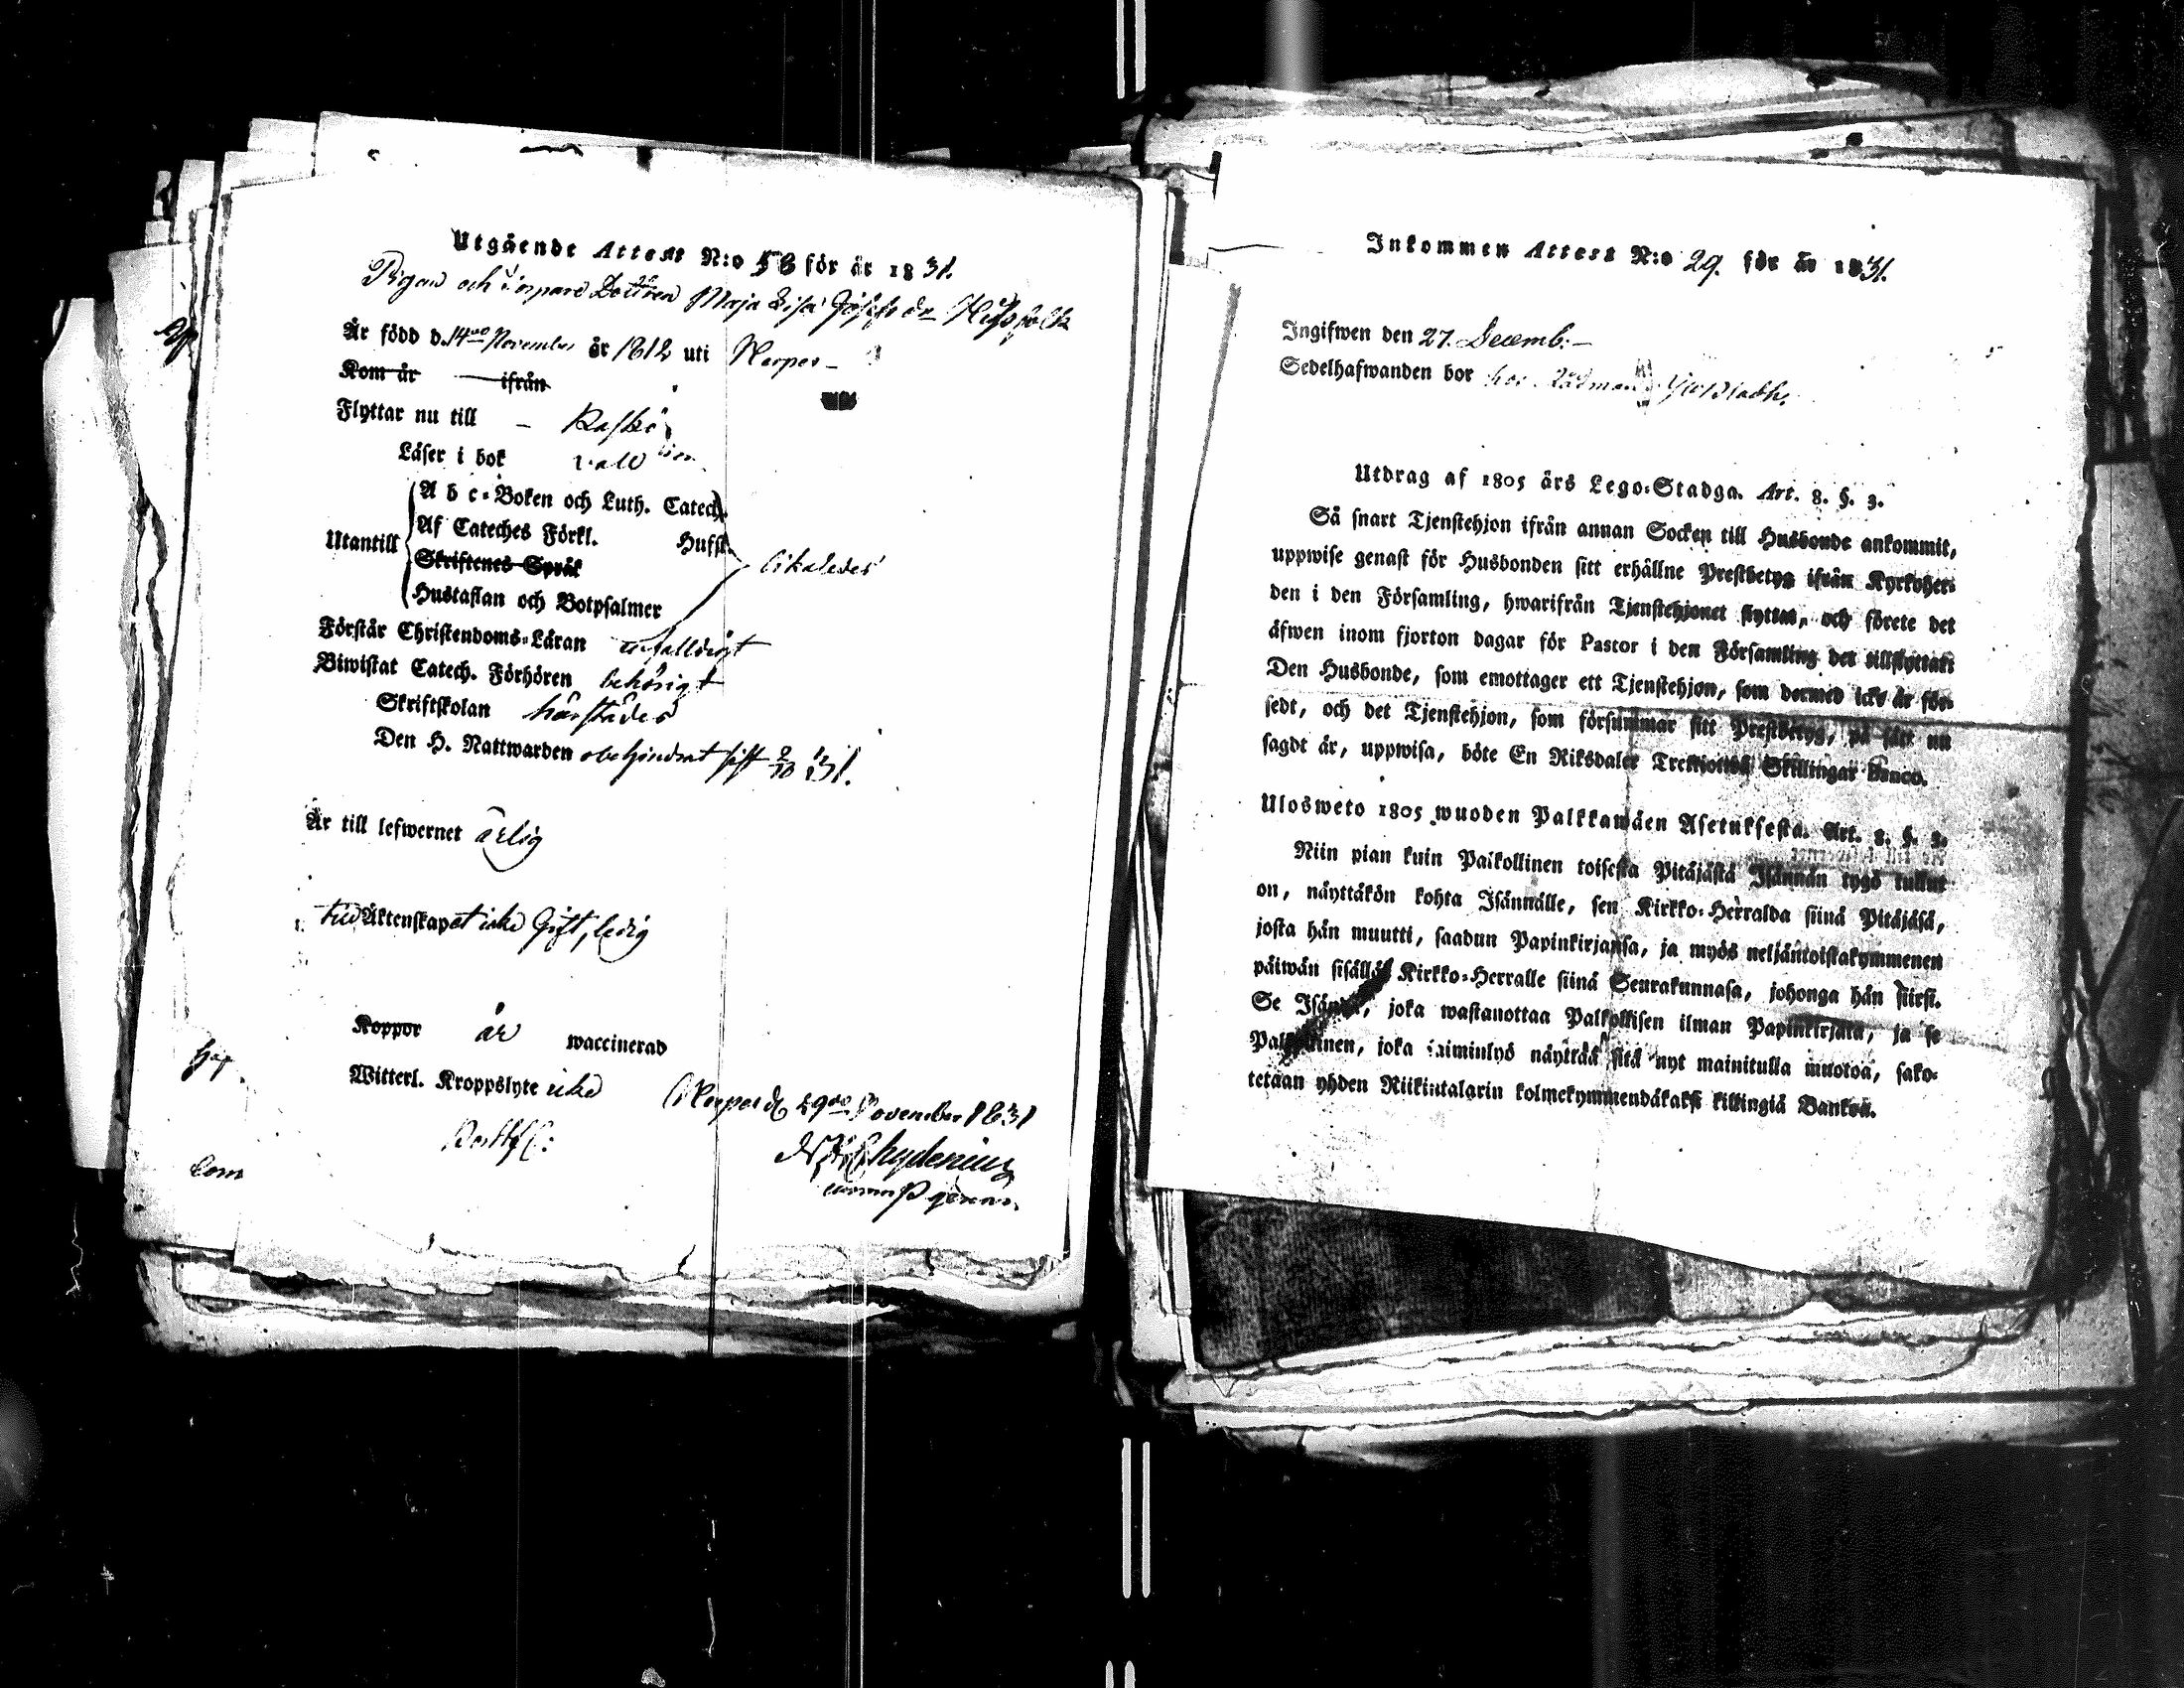 Utgående Attest N:o 58 för år 1831.
Pigan och Torpare Dottren Maja Lisa Josephs dr
Är född d. 14de November år 1812 uti Korpo
Kom år — ifrån
Flyttar nu till
Läser i bok
Utantill
A b c-Boken och Luth. Catech.
Af Cateches Förkl. Husfl.
Skriftenes Språk
likaledes
Hustaflan och Botpsalmer
Förstår Christendoms-Läran enfalldigt
Biwistat Catech. Förhören behörigt
Skriftskolan härstädes
Den H. Nattwarden obehindrat sist 2/10 31.
Är till lefwernet ärlig
till Äktenskapet icke Gift, ledig
Koppor är waccinerad
Witterl. Kroppslyte icke
Korpo d. 29de November 1831
Chydenius
Com
Inkommen Attest N:o 29. för år 1831.
Ingifwen den 27. Decemb:
Sedelhafwanden bor hos Rådman
Utdrag af 1805 års Lego-Stadga. Art. 8. §. 3.
Så snart Tjenstehjon ifrån annan Socken till Husbonde ankommit,
uppwise genast för Husbonden sitt erhållne Prestbetyg ifrån Kyrkoher-
den i den Församling, hwarifrån Tjenstehjonet flyttat, och förete det
äfwen inom fjorton dagar för Pastor i den Församling det tillflyttat.
Den Husbonde, som emottager ett Tjenstehjon, som dermed icke är för-
sedt, och det Tjenstehjon, som försummar sitt Prestbetyg, på sätt nu
sagdt är, uppwisa, böte En Riksdaler Trettiotwå Skillingar Banco.
Ulosweto 1805 wuoden Palkkawäen Asetuksesta. Art. 8. §. 3.
Niin pian kuin Palkollinen toisesta Pitäjästä Isännän tygö tullut
on, näyttäkön kohta Isännälle, sen Kirkko-Herralda siinä Pitäjäsä,
josta hän muutti, saadun Papinkirjansa, ja myös neljäntoistakymmenen
päiwän sisällä Kirkko-Herralle siinä Seurakunnasa, johonga hän siirsi.
Se Isändä, joka wastanottaa Palkollisen ilman Papinkirjata, ja se
Palkollinen, joka laiminlyö näyttää sitä nyt mainitulla muotoa, sako-
tetaan yhden Riikintalarin kolmekymmendäkaksi killingiä Bankoa.